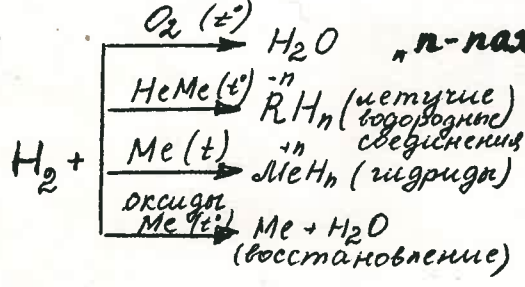 O₂ (t°)
H₂O
„n-
НеМе (t°)
-n
RHn (летучие
водородные
соединения
H₂ +
Ме (t)
+n
МеHn (гидриды)
оксиды
Ме (t°)
Ме + H₂O
(восстановление)